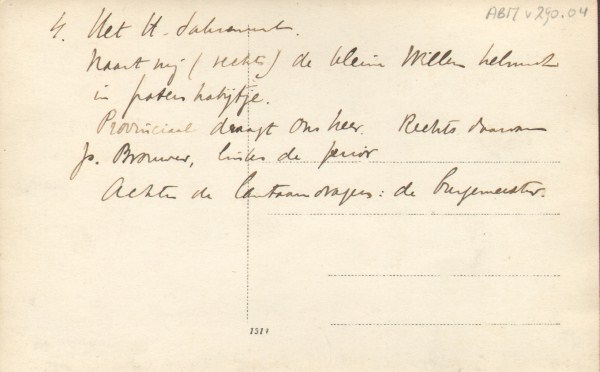 ABM v290.04
4. Het H. Sakrament.
Naast mij (rechts) de kleine Willem helmich
in paters habijtje.
Provinciaal draagt Ons heer. Rechts daarvan
Js. Brouwer, links de prior
Achter de lantaarndragers: de burgemeester.
1511